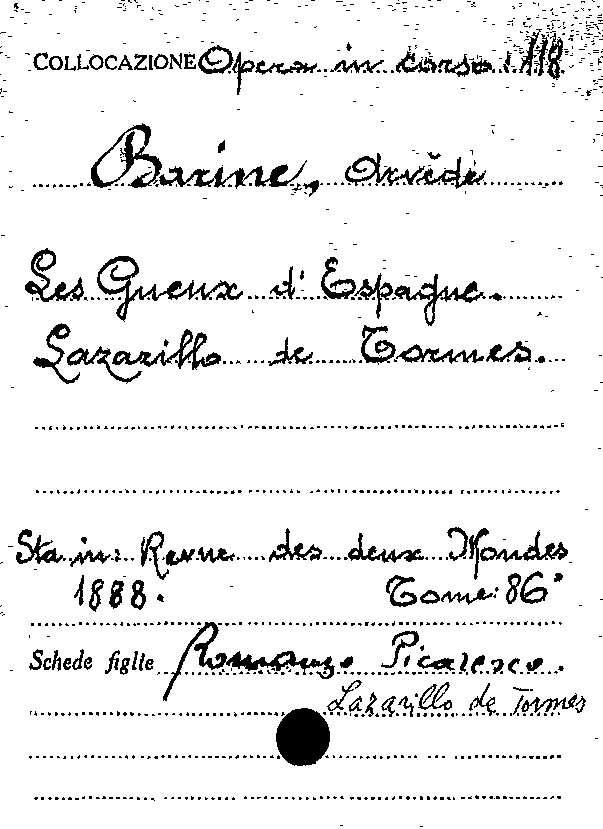 COLLOCAZIONE Opera in corso: 118
Barine, Arvède
Les Gueux d'Espagne.
Lazarillo de Tormes.
Sta in: Revue des deux Mondes
1888. Tome: 86°
Schede figlie Romanzo Picaresco.
Lazarillo de Tormes